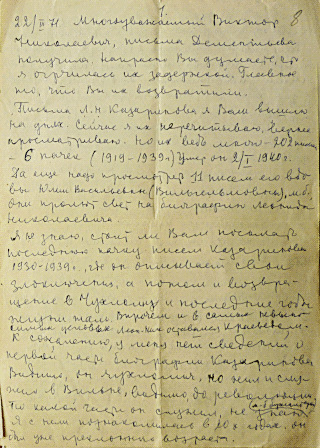 1
22/III 71 Многоуважаемый Виктор 8
Николаевич, письма Дементьева
получила. Напрасно Вы думаете, что
я огорчилась их задержкой. Главное
то, что Вы их возвратили.
Письма Л.Н. Казаринова я Вам вышлю
на днях. Сейчас я их перечитываю,
просматриваю. Но их ведь много - 202
- 6 пачек (1919-1939г) Умер он 2/I 1940г.
Да еще надо просмотреть 11 писем его вдо-
вы Юлии Васильевны (Вильгельмовны),
они прольют свет на биографию Леонида
Николаевича.
Я не знаю, стоит ли Вам посылать
последнюю пачку писем Казаринова
1930-1939г, где он описывает свои
злоключения, а потом и возвра-
щение в Чухлому и последние годы
жизни там. Впрочем и в самых
условиях Леон. Ник. оставался краеведом.
К сожалению, у меня нет сведений о
первой части биографии Казаринова
Видимо, он чухломич, но жил и слу-
жил в Вильне, видимо до революции.
По какой части он служил, не
Я с ним познакомилась в 20х годах, он
был уже преклонного возраста.